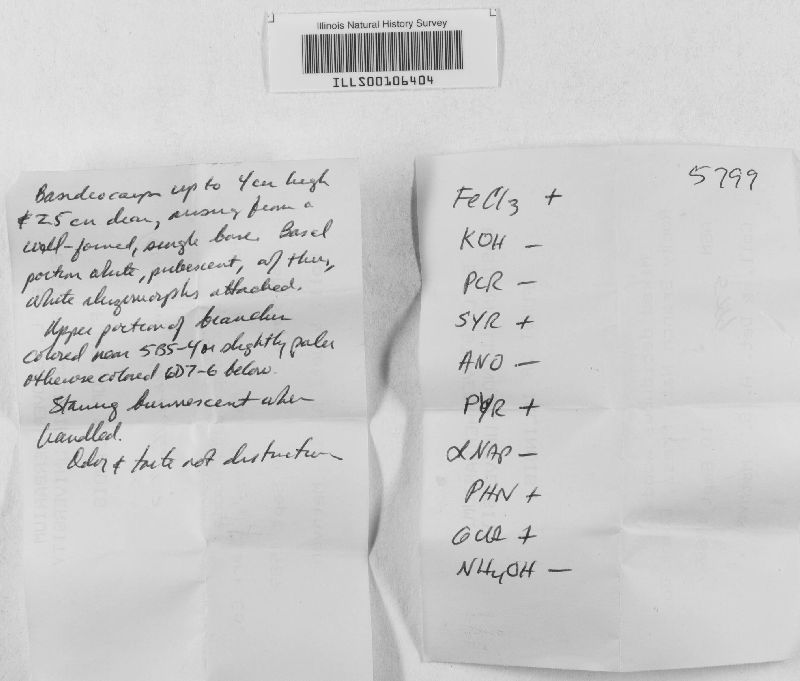 Illinois Natural History Survey
ILLS00106404
Basidiocarps up to 4 cm high
& 2.5 cm diam, arising from a
well-formed, single base. Basal
portion white, pubescent, w/ thin,
white rhizomorphs attached.
Upper portion of branches
colored near 5B5-4 or slightly paler
otherwise colored 6D7-6 below.
Staining brunnescent when
handled.
Odor & taste not distinctive
5799
FeCl3 +
KOH –
PCR –
SYR +
ANO –
PYR +
αNAP –
PHN +
GUA +
NH4OH –